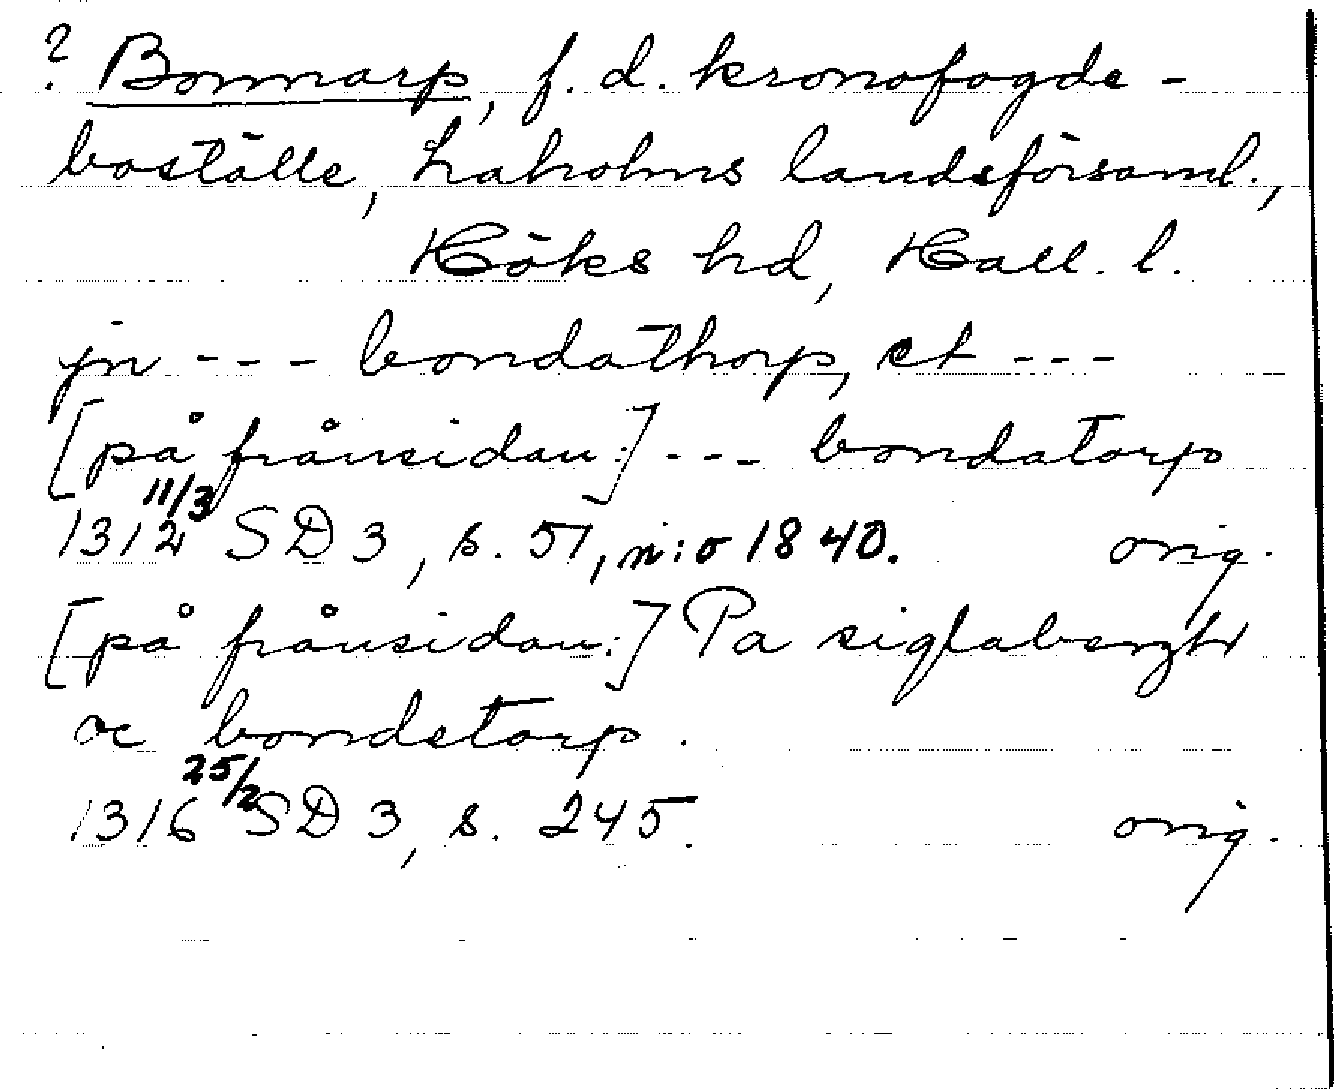 ? Bonnarp, f. d. kronofogde-
boställe, Laholms landsförsaml.,
Höks hd, Hall. l.
jn --- bondathorp, et ---
[på frånsidan:] --- bondatorp
1312 11/3 SD 3, s. 51, n:o 1840. orig.
[på frånsidan:] Pa siglabergh
oc bondetorp.
1316 25/2 SD 3, s. 245. orig.